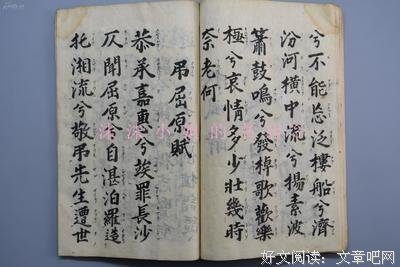 兮不能忘泛樓船兮濟
汾河橫中流兮揚素波
簫鼓鳴兮發棹歌歡樂
極兮哀情多少壯幾時
奈老何
吊屈原賦
恭承嘉惠兮竢罪長沙
仄聞屈原兮自湛汨羅造
托湘流兮敬吊先生遭世
好文阅读：文章吧网